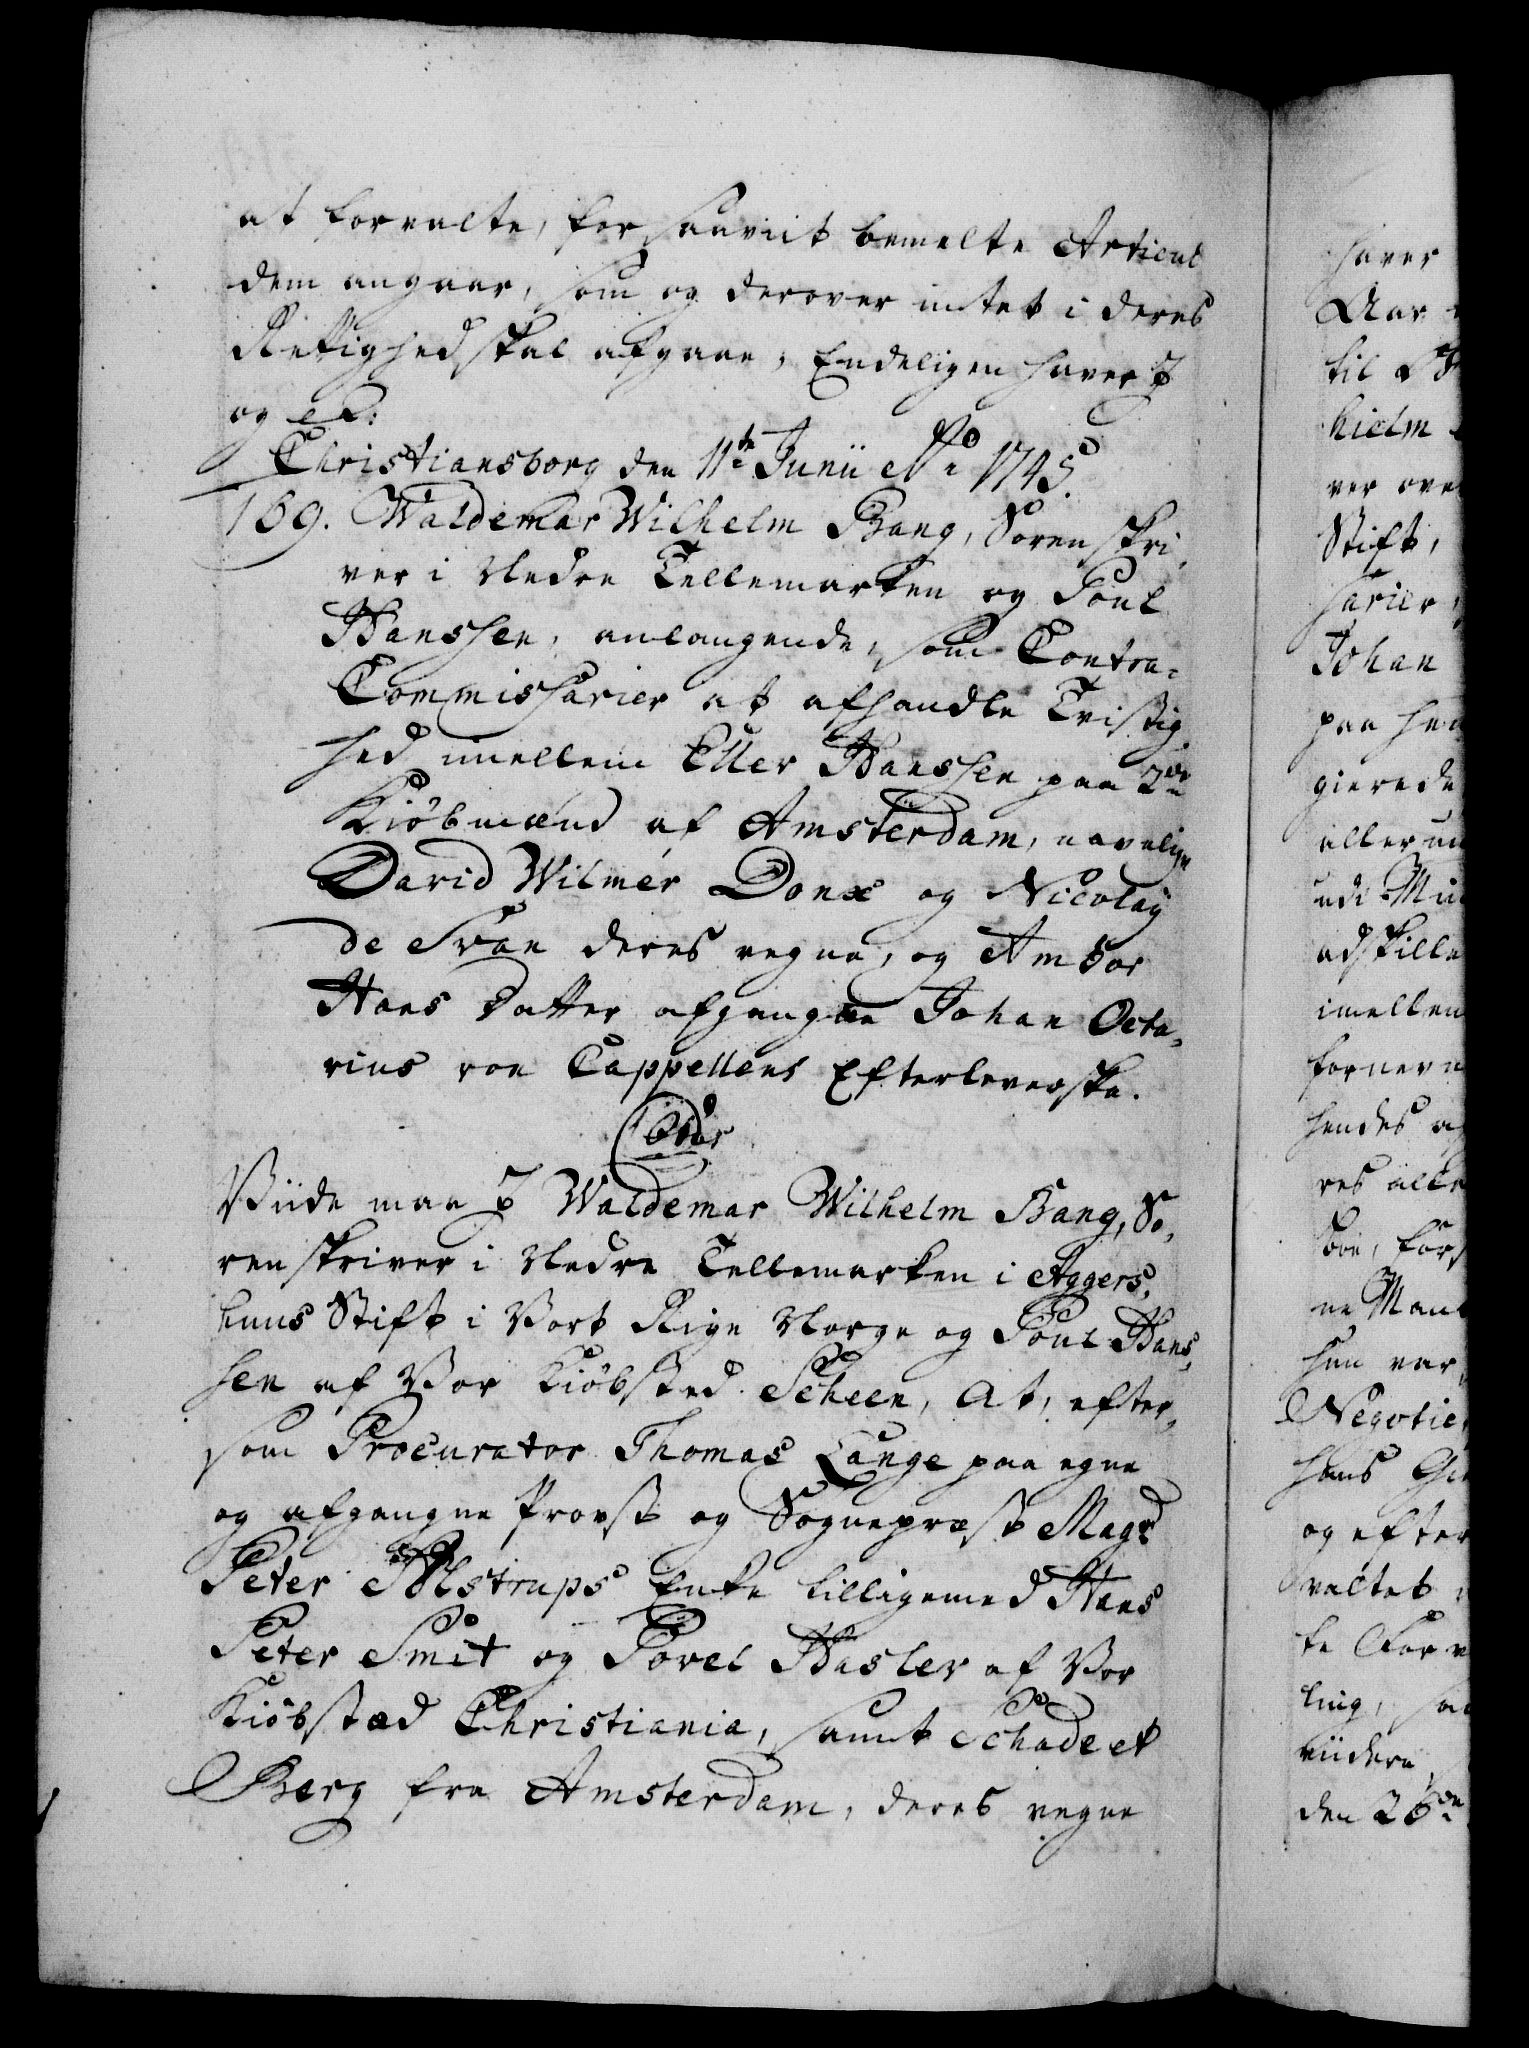 at forvalte, for saavit bemelte Articul
dem angaar, som og derover intet i deres
Rettighed skal afgaae, Endeligen haver I
og etc:
Christiansborg den 11te Junii Ao 1745.
169. Waldemar Wilhelm Bang, Sorenskri,
ver i Nedre Tellemarken og Poul
Hanssen, anlangende, som Contra-
Commissarier at afhandle Tvistig,
hed imellem Eller Hanssen paa 2de
Kiöbmænd af Amsterdam, navnlig
David Wilmer Donx og Nicolaÿ
de Svan deres vegne, og Ambor
Hans Datter afgangne Johan Octa,
vius von Cappellens Efterleverske.
Viide maa I Waldemar Wilhelm Bang, So,
renskriver i Nedre Tellemarken i Aggers,
huus Stift i Vort Rige Norge og Poul Hans,
sen af Vor Kiöbsted Scheen, At, efter,
som Procurator Thomas Lange paa egne
og afgangne Provst og Sognepræst Magr
Peter Hölstrups Enke tilligemed Hans
Peter Smit og Povel Hasler af Vor
Kiöbstæd Christiania, samt Schade et
Berg fra Amsterdam, deres vegne
haver
Aar
til
hielm
ver ove
Stift,
sarier,
Johan
paa hen
gierede
aller un
udi Min
adskille
imellem
fornevn
hendes og
res alle
boe, fors
ne Man
hun var,
Negotie
hans
og efter
valtet
te For
ling, sa
viidere
den 26de